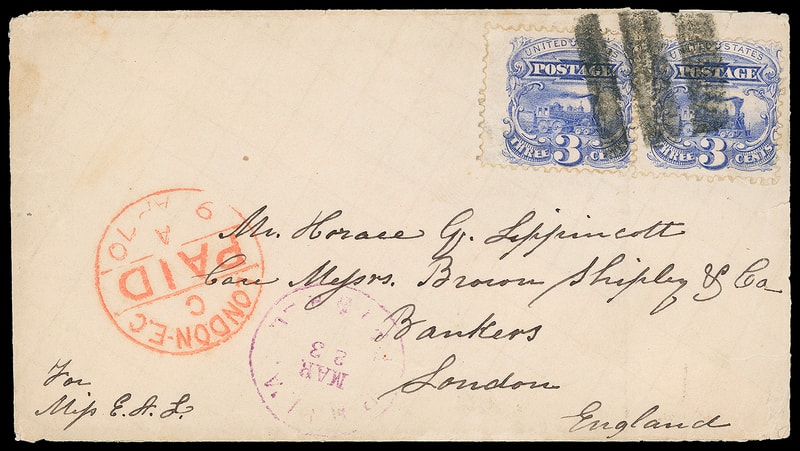 UNITED STATES
POSTAGE
THREE 3 CENTS
UNITED STATES
POSTAGE
THREE 3 CENTS
Mr. Horace G. Lippincott
Care Messrs. Brown Shipley & Co
Bankers
London
England
For
Miss E. A. L.
LONDON-E.C
C
PAID
A
9 AP 70
MAR
23